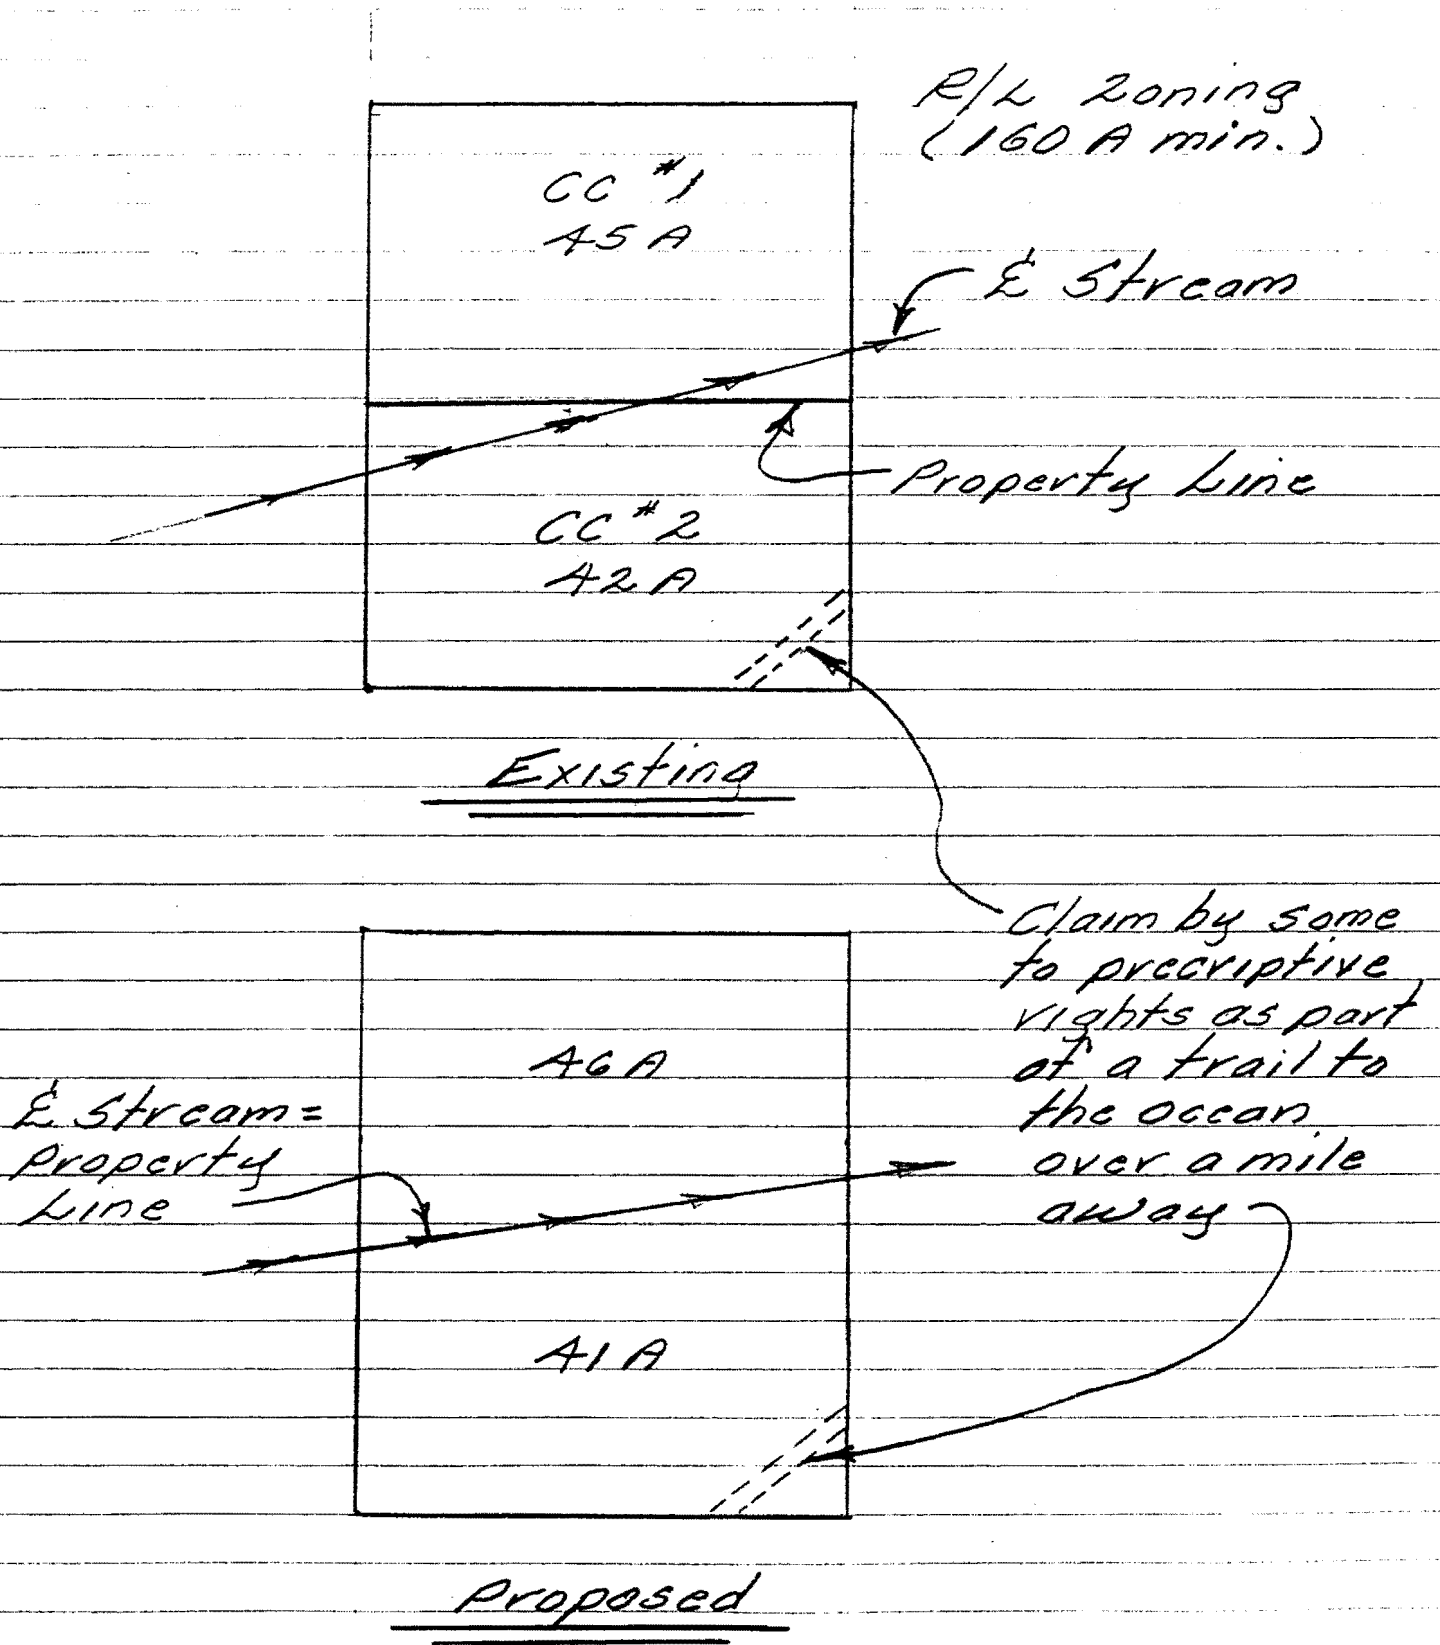 R/L Zoning
(160 A min.)
CC #1
45 A
℄ Stream
Property Line
CC #2
42 A
Existing
Claim by some
to precriptive
rights as part
of a trail to
the ocean
over a mile
away
46 A
℄ Stream =
Property
Line
41 A
Proposed